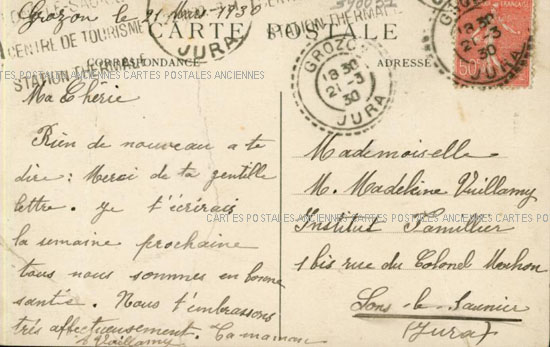 Grozon le 21 Mars 1930
CENTRE DE TOURISME
STATION THERMALE
STATION THERMALE
JURA
CARTE POSTALE
CORRESPONDANCE
ADRESSE
GROZON
18 30
21-3
30
JURA
18 30
21-3
30
JURA
60
CARTES POSTALES ANCIENNES CARTES POSTALES ANCIENNES
Ma Chérie
Rien de nouveau a te
dire : Merci de ta gentille
lettre. Je t'écrirai
la semaine prochaine
tous nous sommes en bonne
santé. Nous t'embrassons
très affectueusement. Ta maman
Vuillamy
Mademoiselle
M. Madeleine Vuillamy
CARTES POSTALES ANCIENNES CARTES POSTALES ANCIENNES
Institut Familier
1 bis rue du Colonel Mahon
Lons-le-Saunier
(Jura)